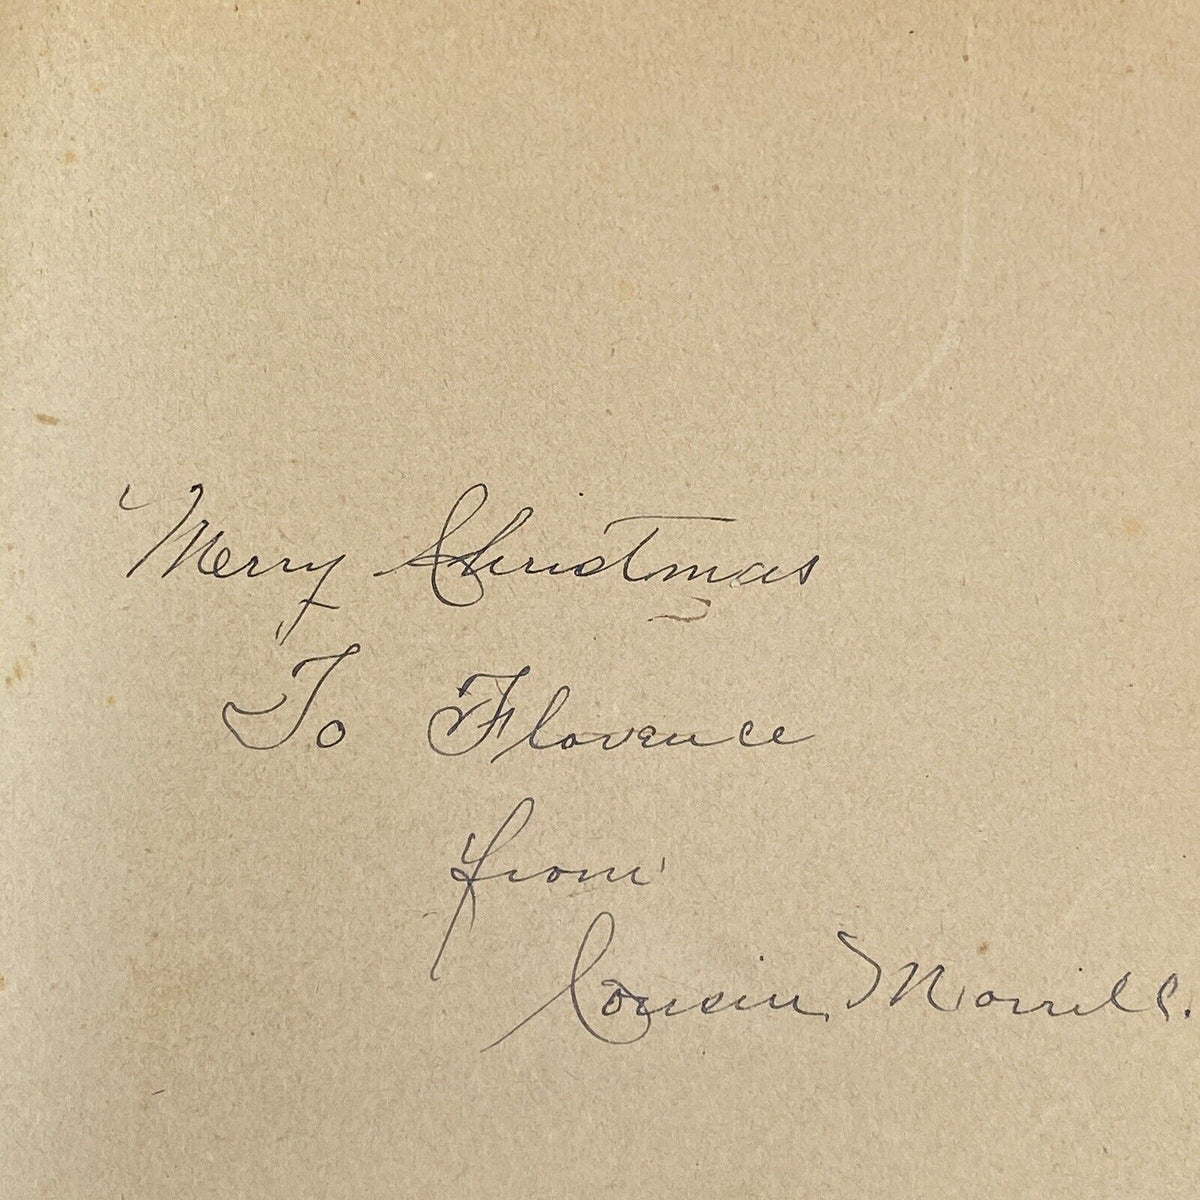 Merry Christmas
To Florence
from
Cousin Morrill.